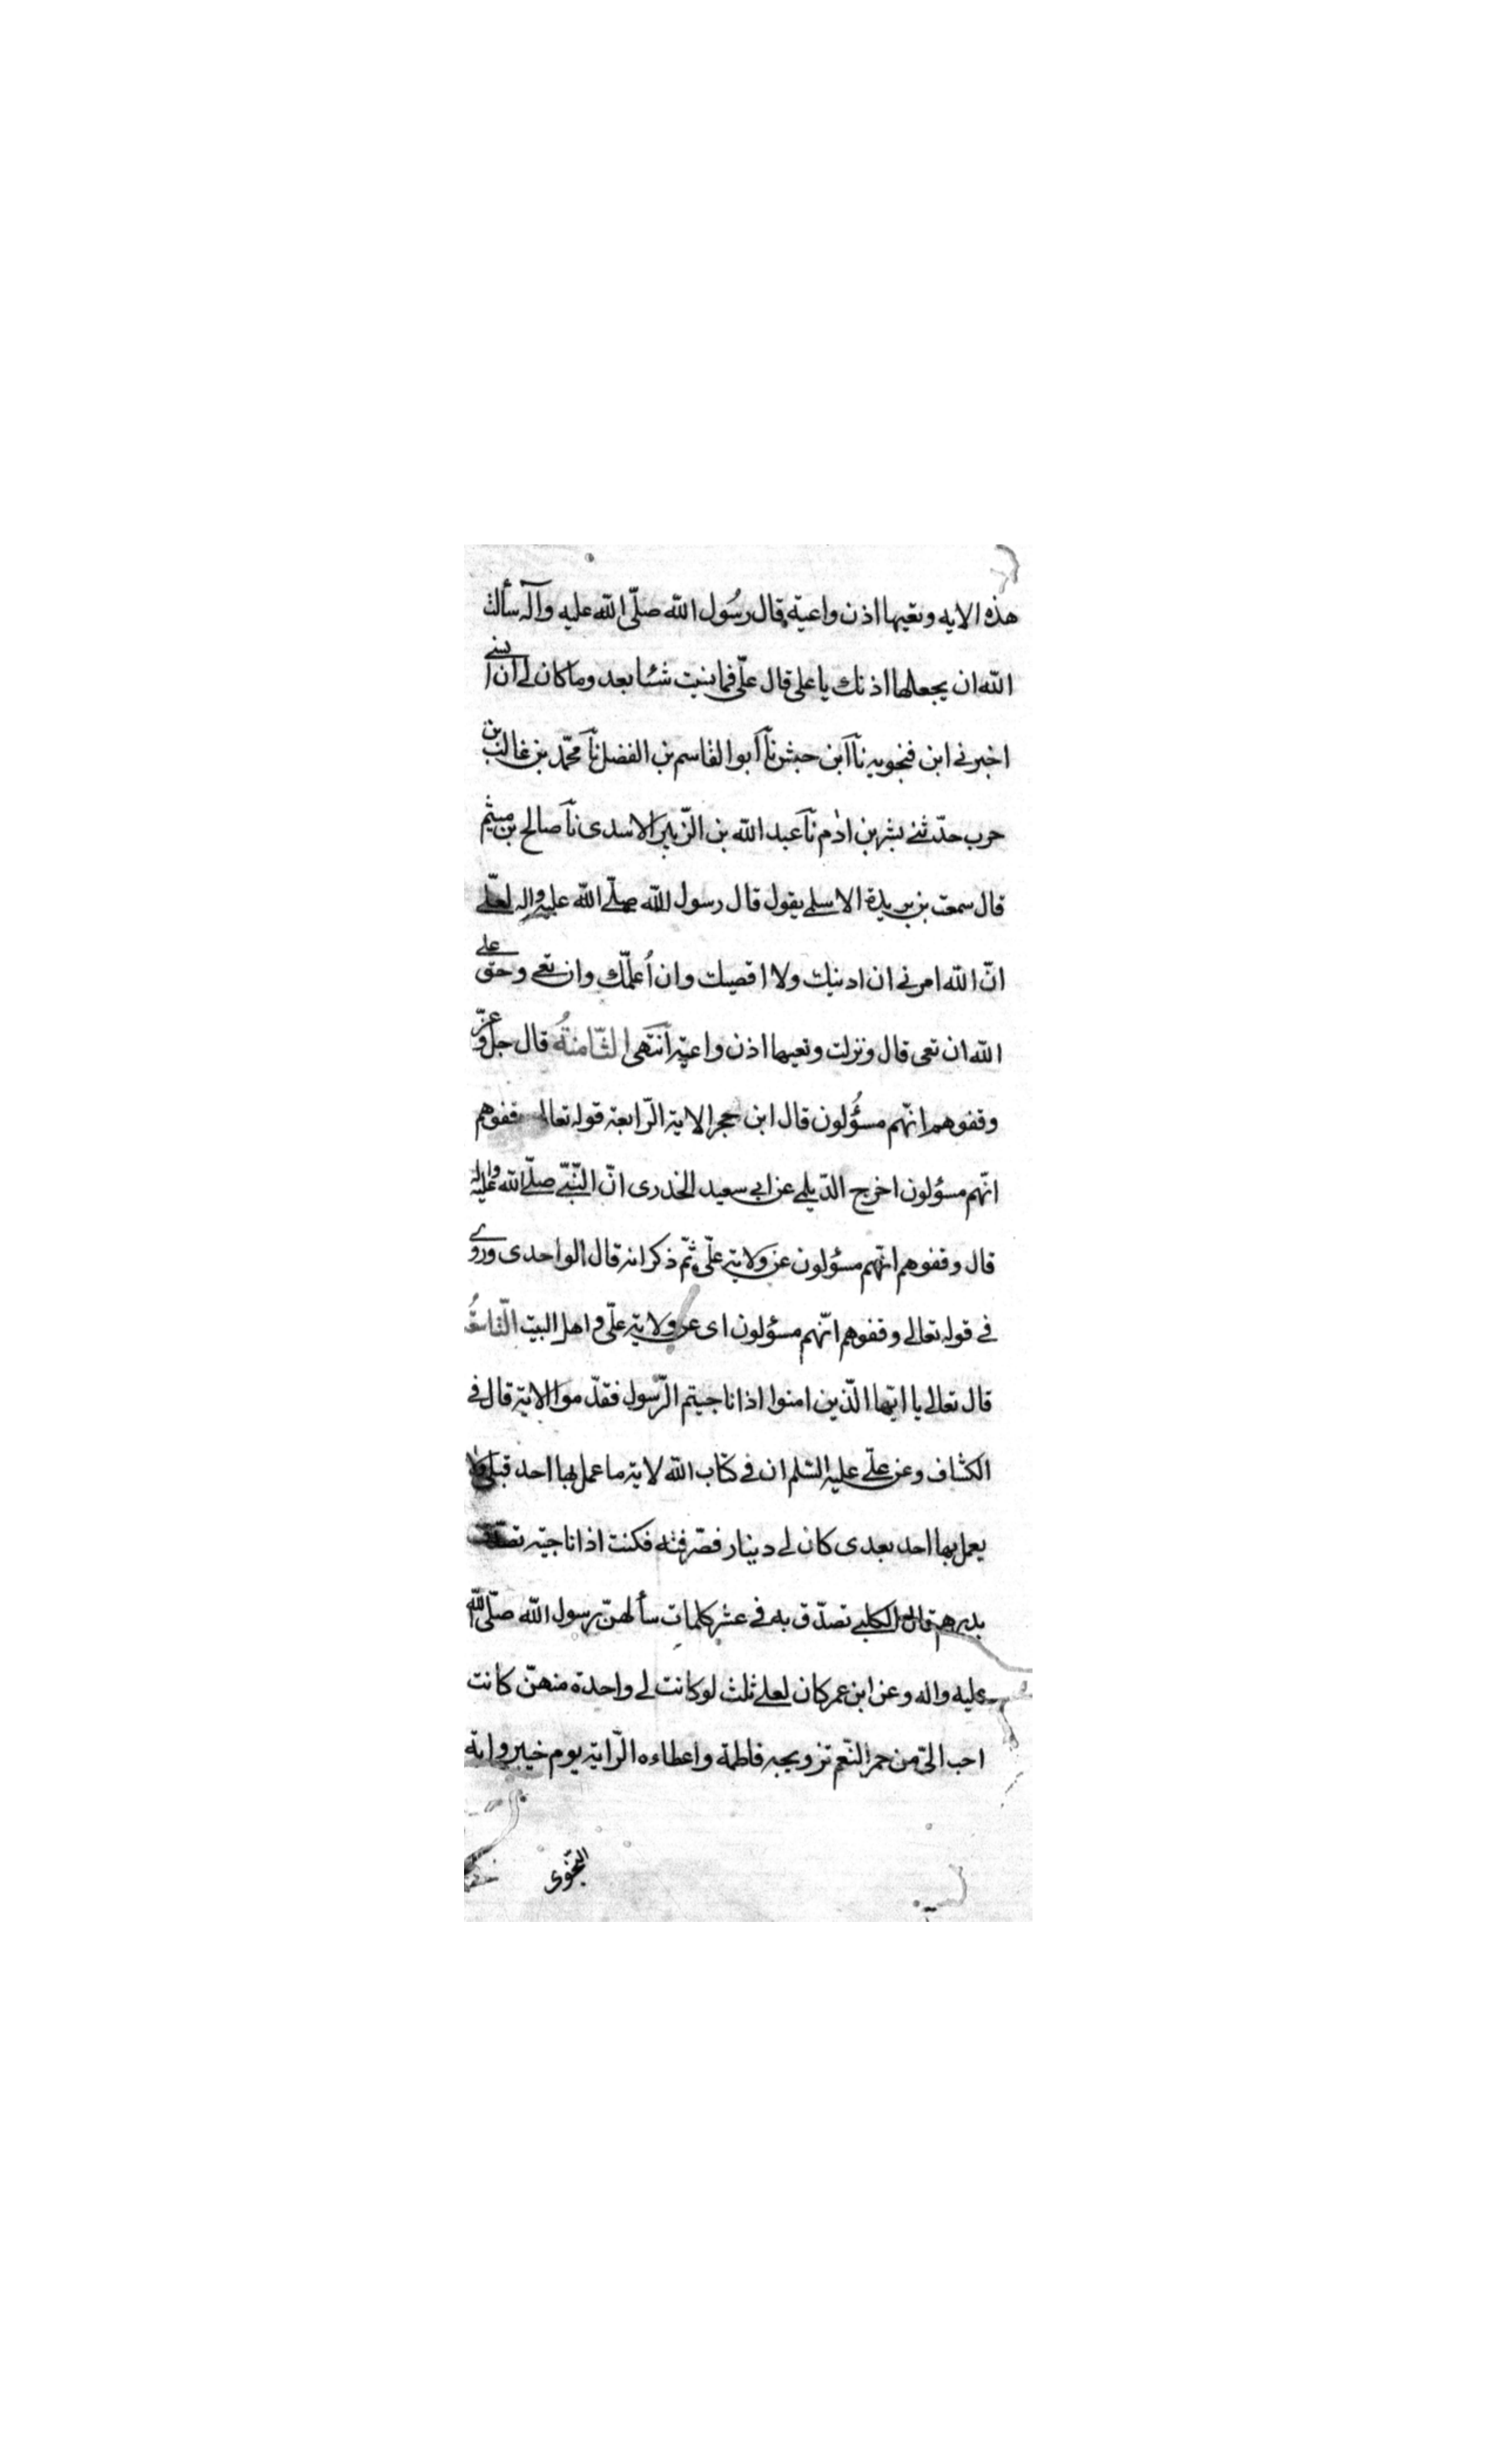 هذه الايه وتعيها اذن واعية قال رسُول الله صلّى الله عليه وآله سألت
الله ان يجعلها اذنك يا على قال علّى فما نسيت شئا بعد وما كان لے ان انسے
اخبرنے ابن فنجويه نآ ابن حبش نآ ابو القاسم بن الفضل نآ محمّد بن غالب بن
حرب حدّثنے بشر بن ادٰم نآ عبد الله بن الزّبير الاسدى نآ صالح بن ميثم
قال سمعت بن بريدة الاسلمے يقول قال رسول الله صلّے الله عليه واله لعلّے
انّ الله امرنے ان ادنيك ولا اقصيك وان اُعلّمك وان تعے وحق علے
الله ان تعى قال ونزلت وتعيها اذن واعية انتهى الثّامنةُ قال جل وعزّ
وقفوهم انّهم مسؤُلون قال ابن حجر الاية الرّابعة قوله تعالى وقفوهم
انّهم مسؤلون اخرج الدّيلمے عن ابى سعيد الخدرى انّ النّبىّ صلّے الله عليه واله
قال وقفوهم انّهم مسؤلون عن ولاية علّى ثمّ ذكر انه قال الواحدى وروے
فے قوله تعالے وقفوهم انّهم مسؤلون اى عن ولاية علّى واهل البيت التّاسعُة
قال تعالے يا ايّها الّذين امنوا اذا ناجيتم الرّسول فقدّموا الاية قال فے
الكشاف وعن علّے عليه السّلم ان فے كتاب الله لاية ما عمل بها احد قبلى ولا
يعمل بها احد بعدى كان لے دينار فصرفته فكنت اذا ناجيته تصدّقت
بدرهم قال الكلبے تصدّق به فے عشر كلمات سألهنّ رسول الله صلّى الله
عليه واله وعن ابن عمر كان لعلے ثلث لو كانت لے واحدة منهنّ كانت
احب الىّ من حمر النّعم تزويجه فاطمة واعطاءه الرّاية يوم خيبر واية
النّجوى